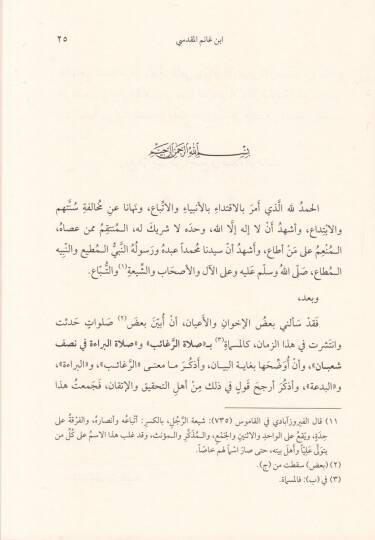 ابن غانم المقدسي ٢٥
بسم الله الرحمن الرحيم
الحمدُ لله الَّذي أمرَ بالاقتداءِ بالأنبياءِ والاتّباع، ونهانا عنِ مُخالفةِ سُنَّتهم
والابْتِداع، وأشهدُ أنْ لا إله إلَّا الله، وحدَه لا شريكَ له، المُنتَقِمُ ممن عصاهُ،
المُنْعِمُ على مَنْ أطاع، وأشهدُ أنّ سيدنا محمداً عبدهُ ورَسولُهُ النَّبيُّ المطيع والنَّبيه
المُطاع، صَلّى اللهُ وسلّم عَليه وعلى الآل والأصحاب والشِّيعةِ(١) والتُّبّاع.
وبعد،
فَقدْ سَألني بعضُ الإخوانِ والأعيان، أنْ أُبيِّنَ بعضَ (٢) صَلواتٍ حَدثت
وانتَشرت في هذا الزمان، كالمسماةِ(٣) بـ«صلاة الرَّغائب» و«صلاة البراءة في نصف
شعبان»، وأنْ أُوَضِّحَها بغايةِ البيان، وأذكرَ ما معنى «الرَّغائب»، و«البراءة»،
و«البدعة»، وأذكرَ أرجحَ قولٍ في ذلك مِنْ أهلِ التحقيق والإتقان، فَجمعتُ هذا
(١) قال الفيروزآبادي في القاموس (٧٣٥): شيعة الرَّجُلِ، بالكسرِ: أتباعُه وأنصارُه، والفرْقةُ على
حِدَةٍ، ويَقعُ على الواحدِ والاثنينِ والجَمْعِ، والمُذَكَّرِ والمؤنث، وقد غلب هذا الاسمُ على كُلِّ من
يتولّى عَلِيّاً وأهلَ بيته، حتى صارَ اسْماً لهم خاصّاً.
(٢) (بعض) سقطت من (ج).
(٣) في (ب): فالمسماة.